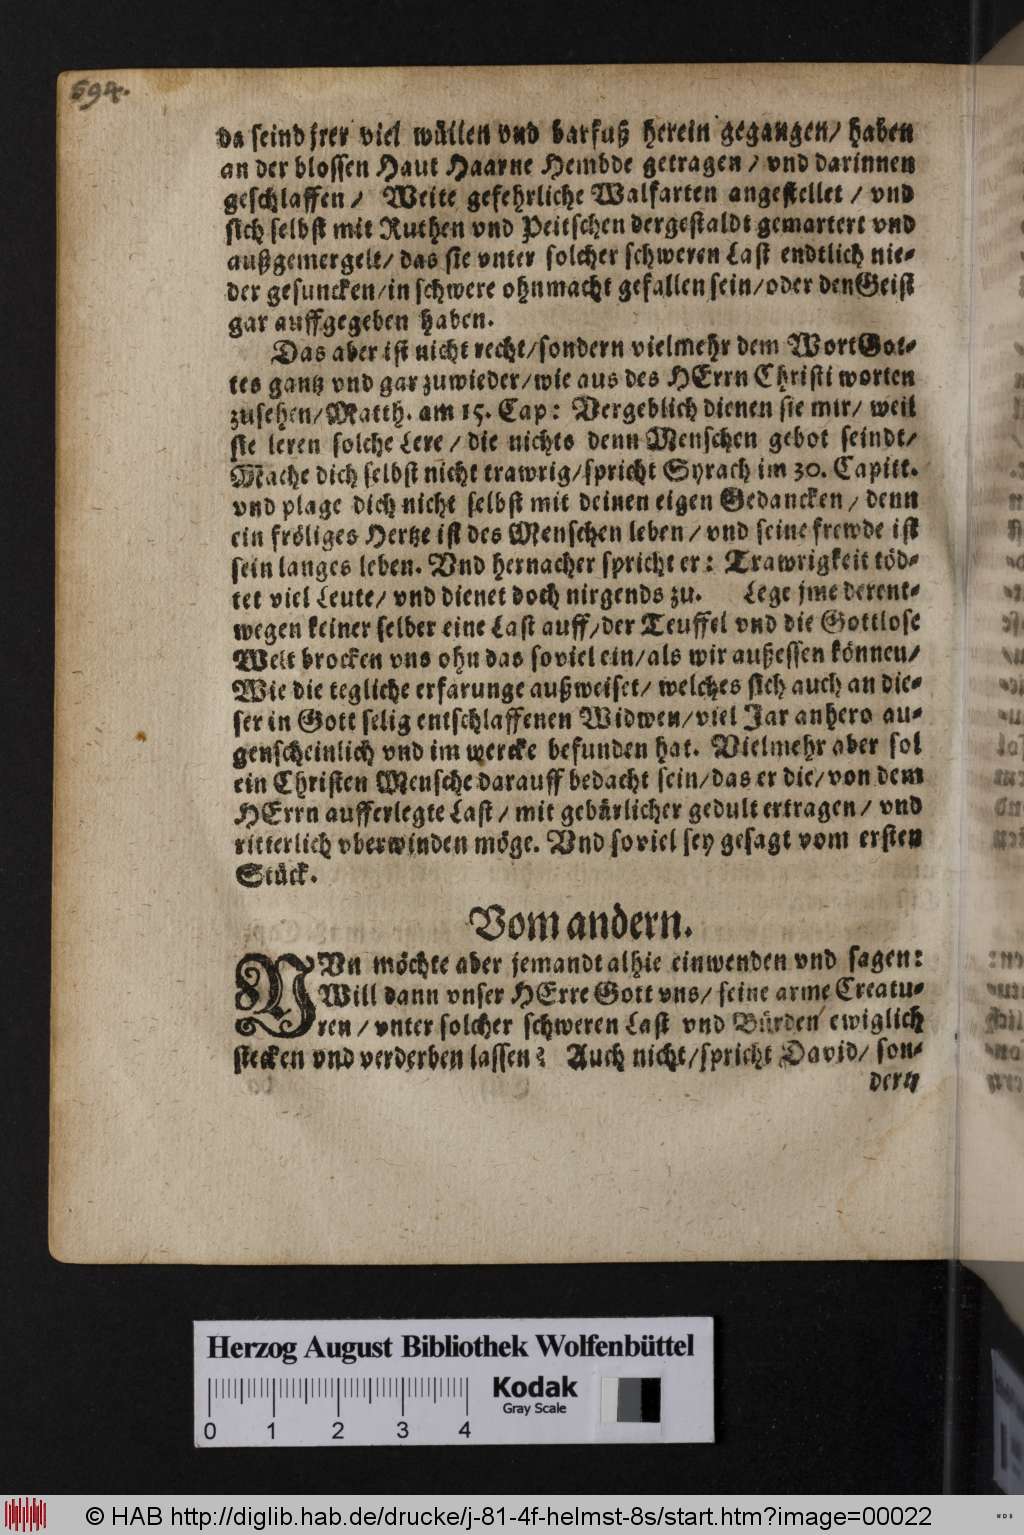 694.
da seind jrer viel wüllen vnd barfuß herein gegangen/ haben
an der blossen Haut Haarne Hembde getragen / vnd darinnen
geschlaffen / Weite gefehrliche Walfarten angestellet / vnd
sich selbst mit Ruthen vnd Peitschen dergestaldt gemartert vnd
außgemergelt/ das sie vnter solcher schweren Last endtlich nie-
der gesuncken/in schwere ohnmacht gefallen sein/oder den Geist
gar auffgegeben haben.
Das aber ist nicht recht/sondern vielmehr dem Wort Got-
tes gantz vnd gar zuwieder/wie aus des HErrn Christi worten
zusehen/Matth. am 15. Cap: Vergeblich dienen sie mir/ weil
sie leren solche Lere / die nichts denn Menschen gebot seindt/
Mache dich selbst nicht trawrig/spricht Syrach im 30. Capitt.
vnd plage dich nicht selbst mit deinen eigen Gedancken / denn
ein fröliges Hertze ist des Menschen leben / vnd seine frewde ist
sein langes leben. Vnd hernacher spricht er: Trawrigkeit töd-
tet viel Leute/ vnd dienet doch nirgends zu. Lege jme derent-
wegen keiner selber eine Last auff/der Teuffel vnd die Gottlose
Welt brocken vns ohn das soviel ein/als wir außessen können/
Wie die tegliche erfarunge außweiset/ welches sich auch an die-
ser in Gott selig entschlaffenen Widwen/viel Jar anhero au-
genscheinlich vnd im wercke befunden hat. Vielmehr aber sol
ein Christen Mensche darauff bedacht sein/das er die/von dem
HErrn aufferlegte Last / mit gebürlicher gedult ertragen / vnd
ritterlich vberwinden möge. Vnd soviel sey gesagt vom ersten
Stück.
Vom andern.
NVn möchte aber jemandt alhie einwenden vnd sagen:
Will dann vnser HErre Gott vns/ seine arme Creatu-
ren / vnter solcher schweren Last vnd Bürden ewiglich
stecken vnd verderben lassen? Auch nicht/spricht David/ son-
dern
Herzog August Bibliothek Wolfenbüttel
Kodak
Gray Scale
0 1 2 3 4
© HAB http://diglib.hab.de/drucke/j-81-4f-helmst-8s/start.htm?image=00022